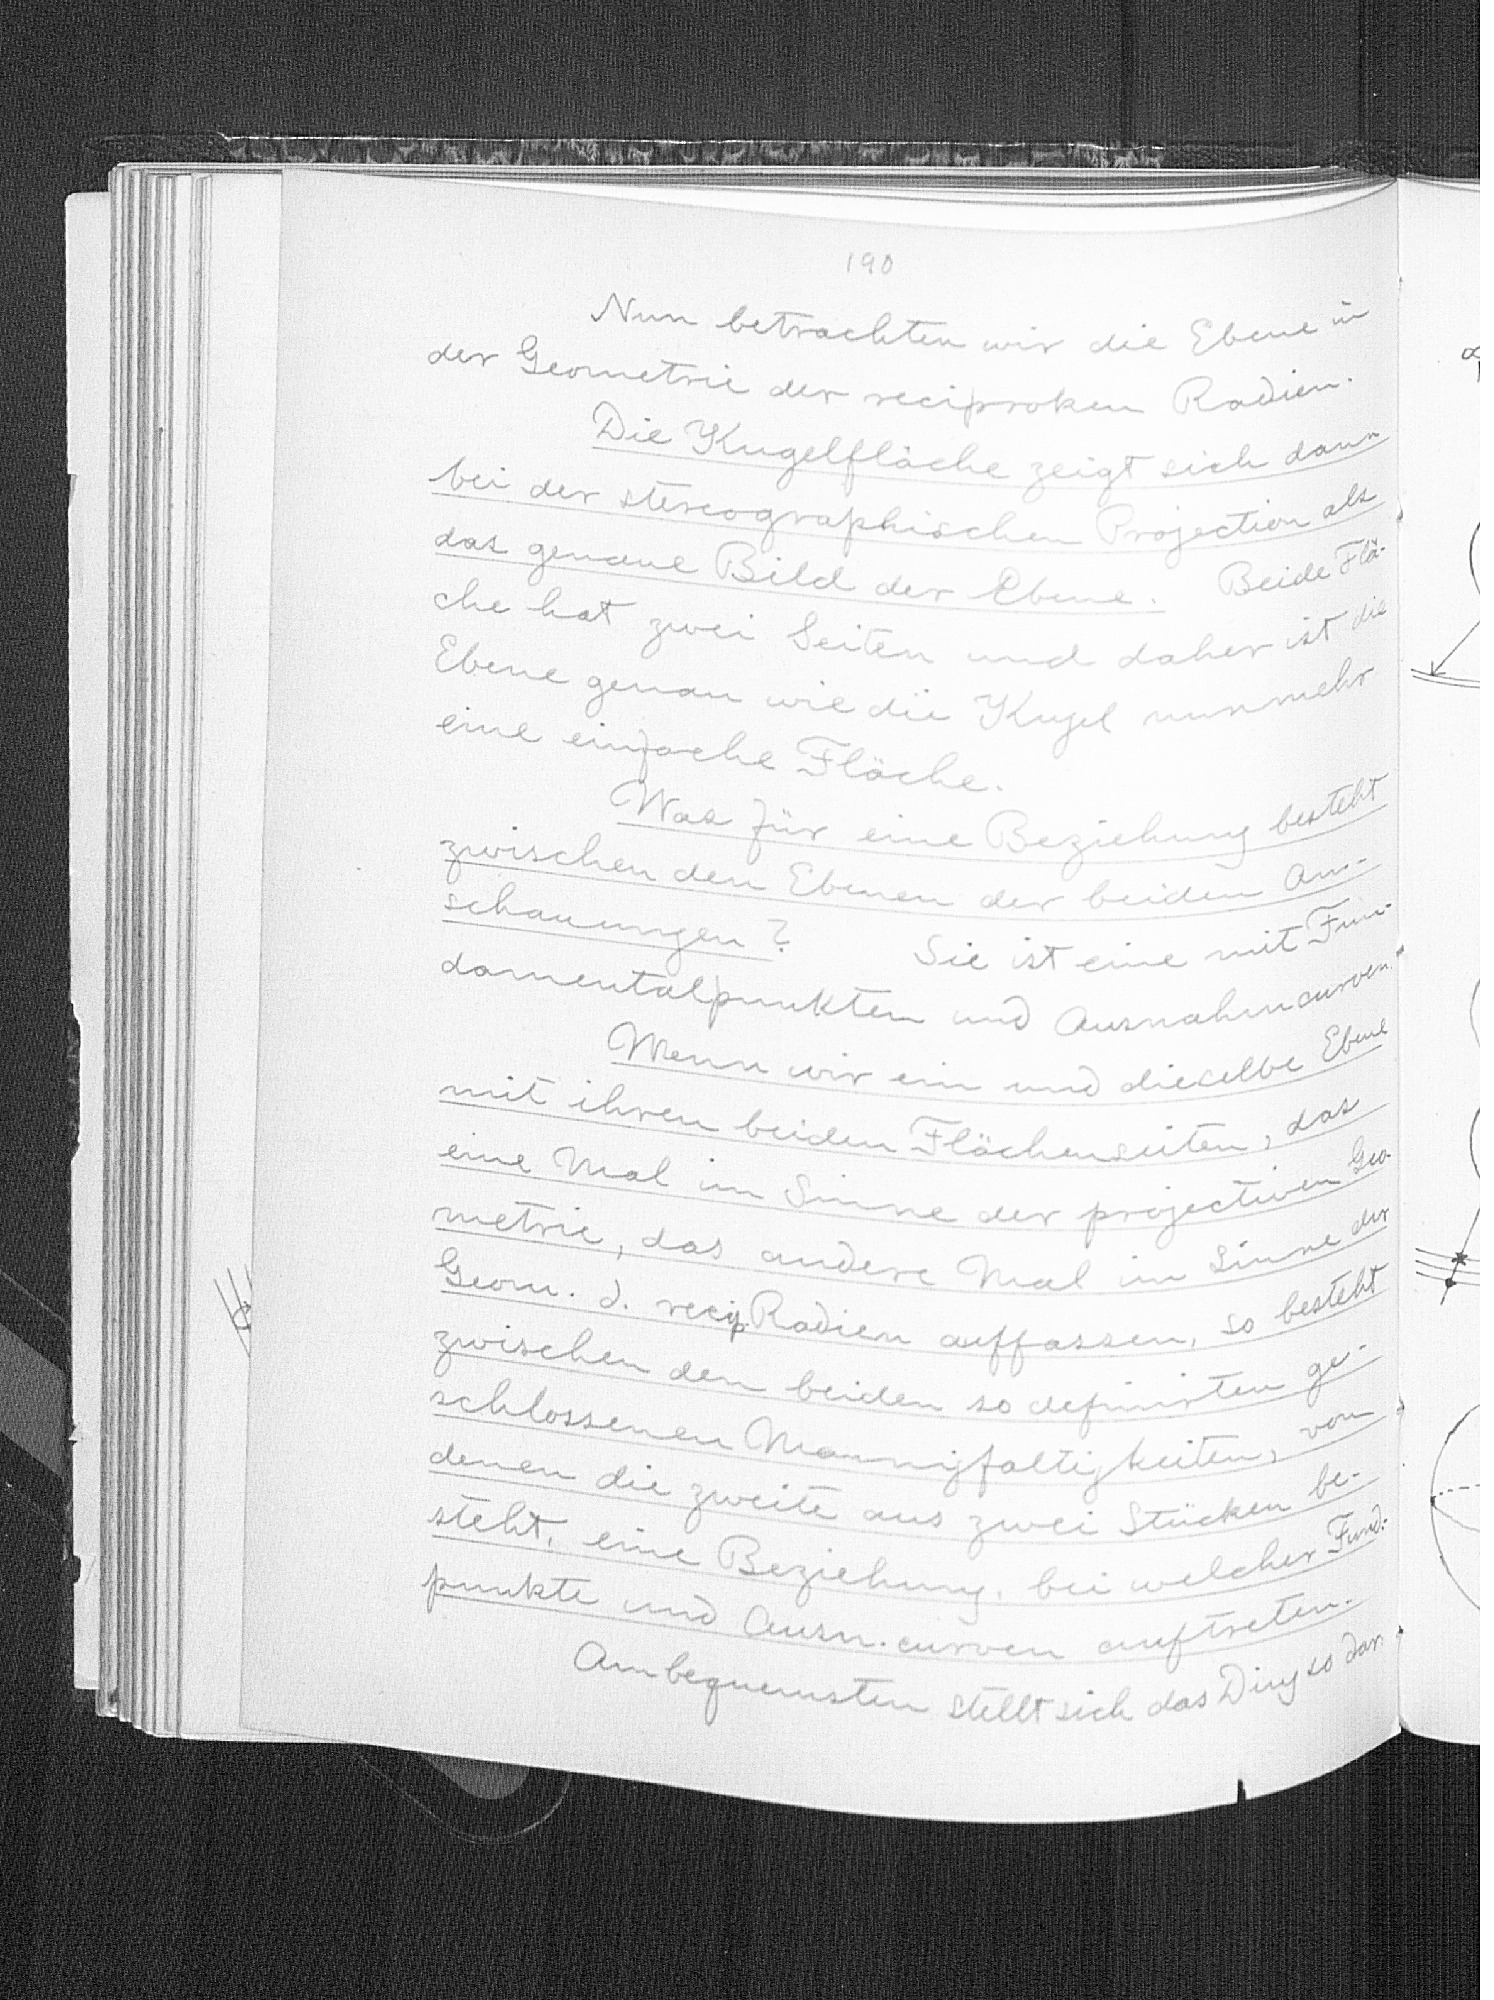 190
Nun betrachten wir die Ebene in
der Geometrie der reciproken Radien.
Die Kugelfläche zeigt sich dann
bei der stereographischen Projection als
das genaue Bild der Ebene. Beide Flä-
che hat zwei Seiten und daher ist die
Ebene genau wie die Kugel nunmehr
eine einfache Fläche.
Was für eine Beziehung besteht
zwischen den Ebenen der beiden An-
schauungen? Sie ist eine mit Fun-
damentalpunkten und Ausnahmcurven.
Wenn wir ein und dieselbe Ebene
mit ihren beiden Flächenseiten, das
eine Mal im Sinne der projectiven Geo-
metrie, das andere Mal im Sinne der
Geom. d. recip Radien auffassen, so besteht
zwischen den beiden so definirten ge-
schlossenen Mannigfaltigkeiten, von
denen die zweite aus zwei Stücken be-
steht, eine Beziehung, bei welcher Fund.-
punkte und Ausn. curven auftreten.
Am bequemsten stellt sich das Ding so dar.